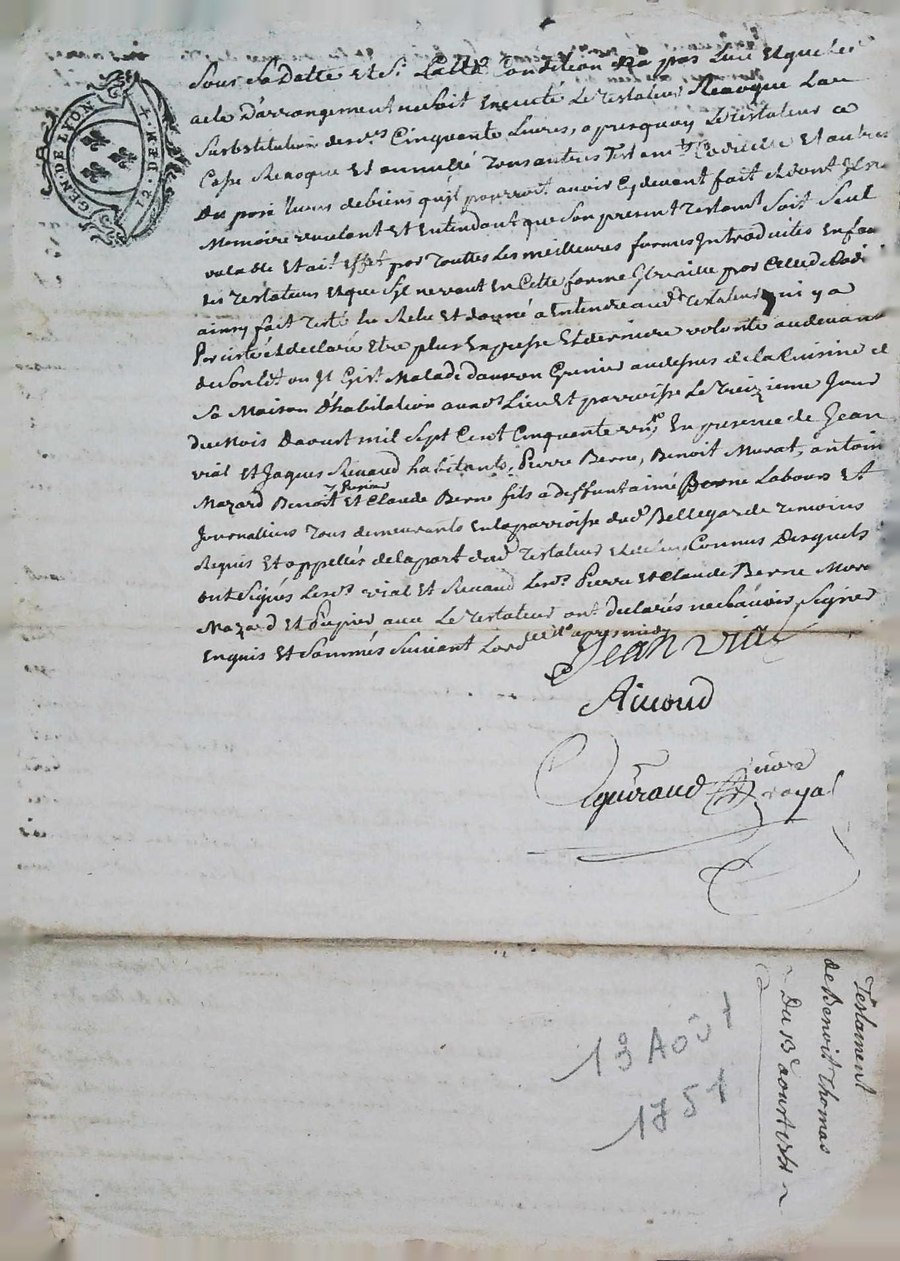 GEN. DE LYON
Sous Sa Datte et Sy Laditte Condition na pas Lieu Et que led
acte D'arrangement ne soit Execute Le Testateur Revoque Lad
Substitution desds Cinquante Livres, apresquoy Le testateur a
Casse Revoque Et annullé Tous autres Testamts Codicille Et autres
Disposi tions de biens qu'jl pourroit avoir Cy devant fait
Memoire voulant Et Entendant que Son present Testamt Soit Seul
valable Et ait Effet par Touttes Les meilleures formes Introduites En faveur
des Testateurs Et que Syl ne vaut En Cette forme Il vaille par Celle de Codi
ainsy fait Testé lu Relu Et donné a Entendre aud Testateur qui y a
Persisté et declaré Etre plus Expresse Et derniere volonté au devant
de Son Lit ou Il Gist Malade dans un Grenier au dessus de la Cuisine de
Sa Maison D'habitation aud Lieu Et parroisse Le Treizieme Jour
du Mois Daoust mil Sept Cent Cinquante un, En presence de Jean
vial Et Jaques Rivaud habitants, Pierre Berne, Benoit Murat, antoin
Mazard Benoit Pupier Et Claude Berne fils a deffunt aimé Berne Labours Et
Journaliers Tous demeurants En la parroisse dud Bellegarde Temoins
Requis Et appellés de la part dud Testateur et de luy Connus Desquels
ont Signés Lesds vial Et Rivaud Lesds Pierre Et Claude Berne Mura
Mazard Et Pupier avec Le Testateur ont declarés ne Scavoir Signer
Enquis Et Sommés Suivant Lord apres midy
Jean vial
Rivaud
Notre
royal
Testament
de Benoit Thomas
Du 13e aoust 1751
13 Août
1751